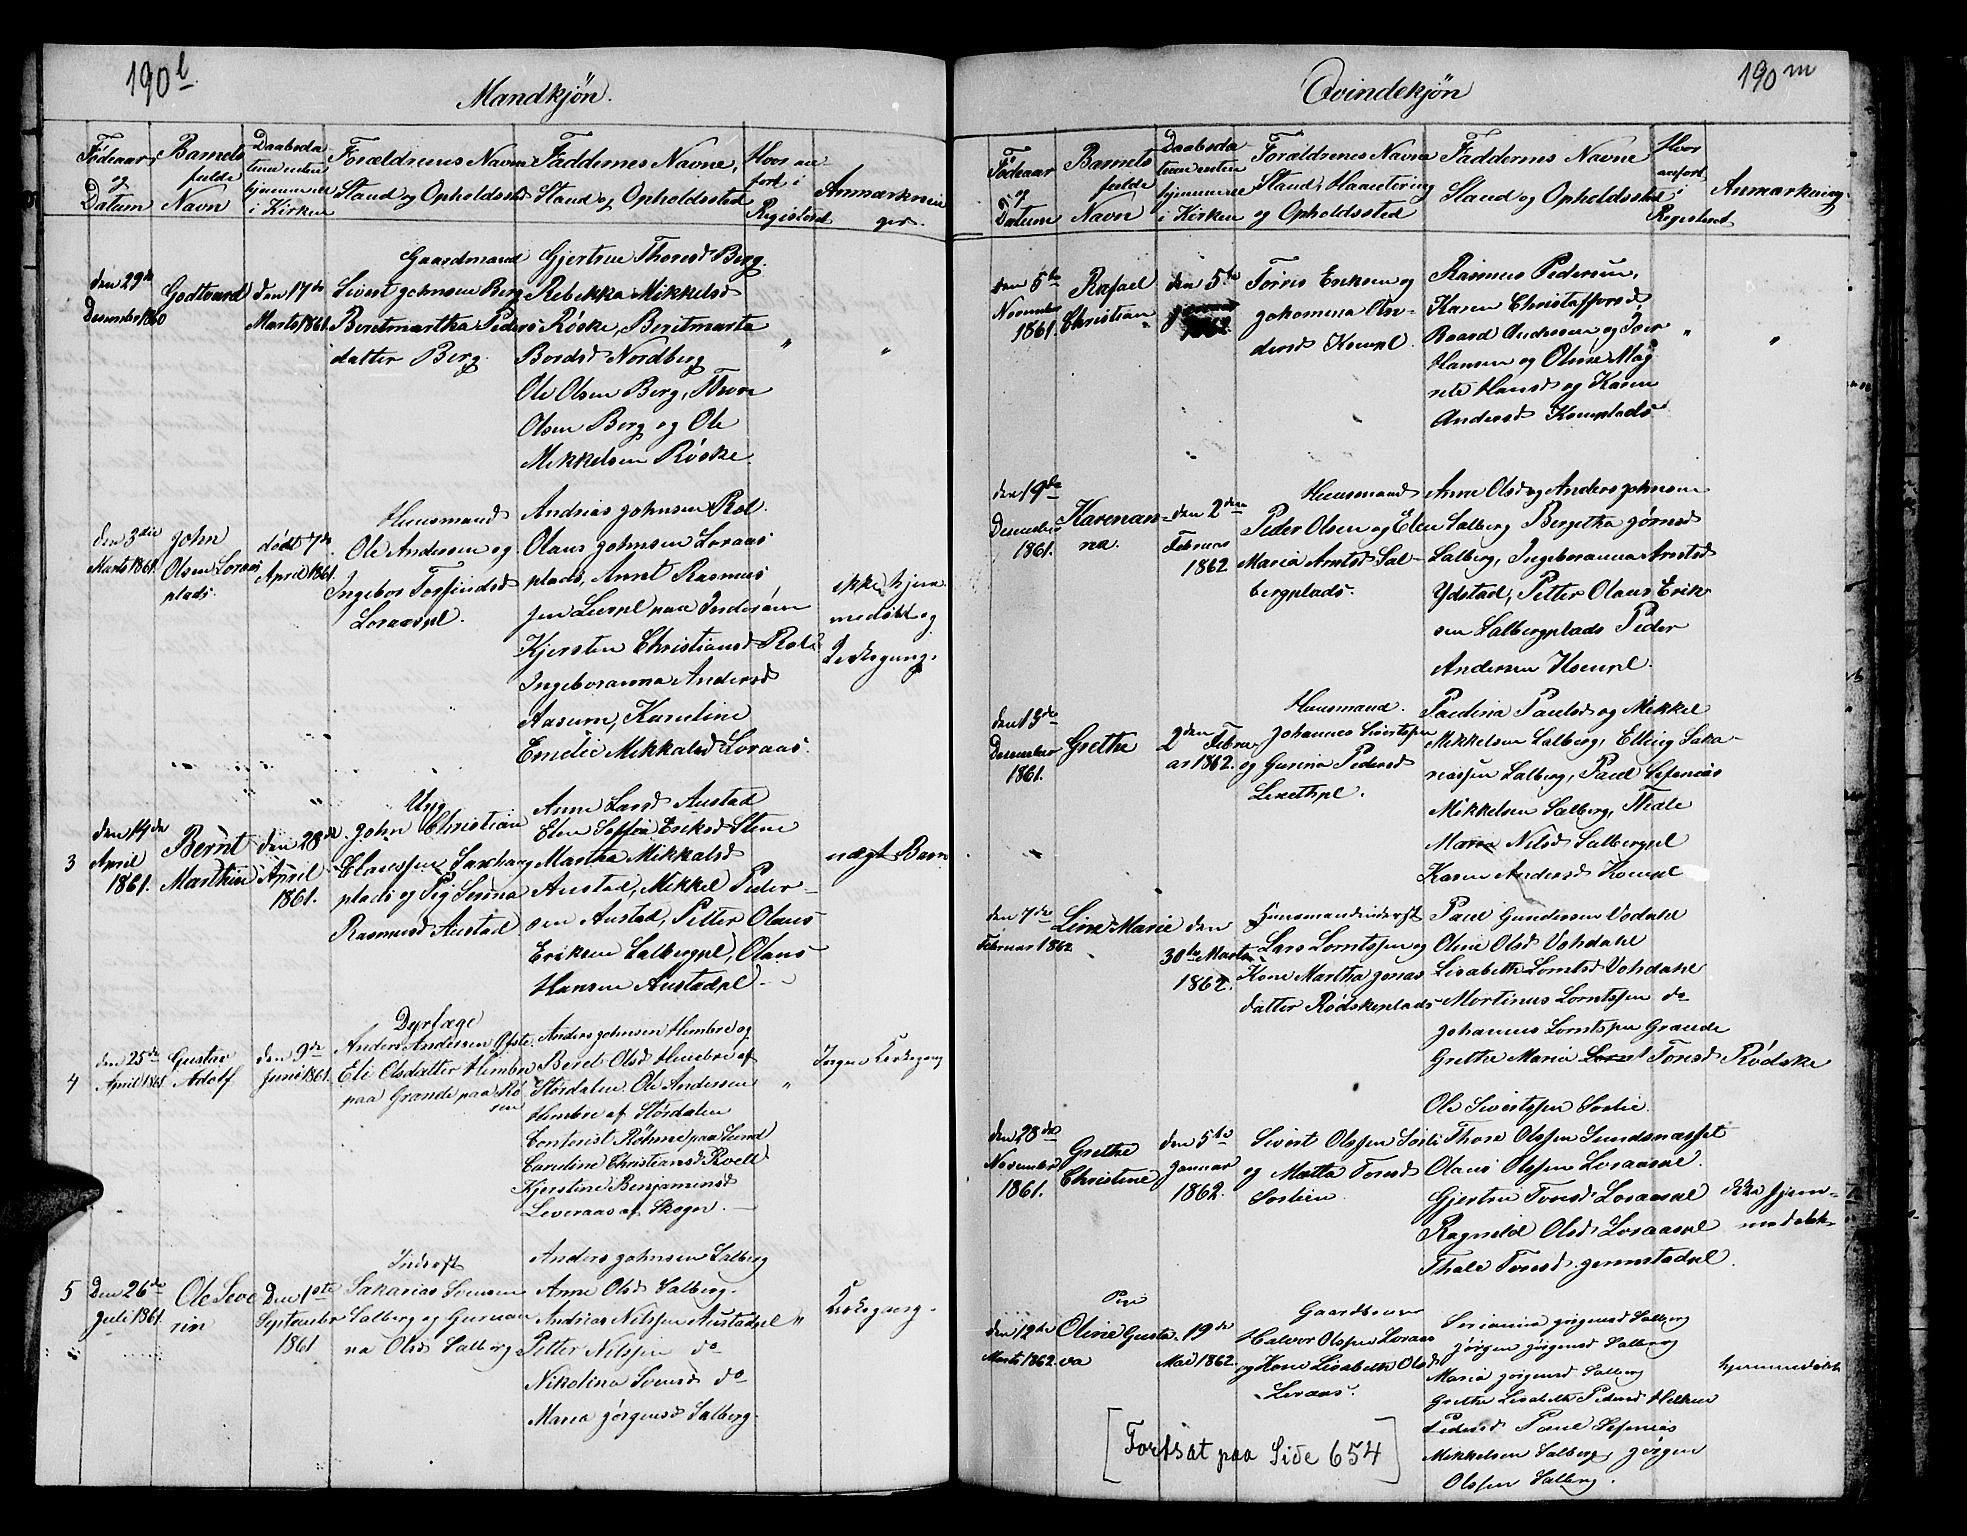 190 l
Mandkjön.
Födeaar og Datum
Barnets fulde Navn
Daabsdatum enten hjemme el i Kirken
Forældrenes Navn Stand og Opholdssted
Faddernes Navne, Stand og Opholdssted
Hvor anfört i Registeret
Anmærkninger.
den 29de December 1860
Godtvard
den 17de Marts 1861
Gaardmand
Sivert Johnsen Berg
Beretmartha Peders
datter Berg.
Gjertrue Thoresd Berg.
Rebekka Mikkelsd
Röske, Beritmarta
Bordsd Nordberg
Ole Olsen Berg, Thore
Olsen Berg og Ole
Mikkelsen Röske.
"
"
den 3die Marts 1861
John
Olsen Loraas
plads.
dödt 7de
April 1861.
Huusmand
Ole Andersen og
Ingebor Torfindsd
Loraaspl.
Andrias Johnsen Rol
Olaus Johnsen Loraas
plads, Arnt Rasmus
sen Leirpl paa Inderöen
Kjersten Christiansd Rols
Ingeboranna Andersd
Aasum, Karoline
Emelie Mikkalsd Loraas.
ikke hjem
medöbt og
Kirkegang.
3
den 14de April 1861.
Bernt
Marthin
den 28de
April
1861.
Ung
John Christian
Claussen Saxhaug
plads og Pig Serina
Rasmusd Austad
Anne Larsd Austad
Elen Soffia Eriksd Stene
Martha Mikkalsd
Austad, Mikkel Peder-
sen Austad, Petter Olaus
Eriksen Salbergpl, Olaus
Hansen Austadpl.
uægt Barn
4
den 25de
April 1861
Gustav
Adolf
den 9de
Juni 1861.
Dyrlæge
Anders Andersen Ofste.
Eli Olsdatter Hembre
paa Grande paa Rö
sen
Anders Johnsen Hembre og
Beret Olsd Hembre af
Stördalen. Ole Andersen
Hembre af Stördalen
Contorist Röhme paa Sund
Caroline Christiansd Roell
Kjerstine Benjaminsd
Leveraas af Skogn.
"
Ingen Kirkegang
5
Den 26de
Juli 1861.
Ole Seve
rin
Den 1ste
September
1861
Inderst
Sakarias Svensen
Salberg og Gurian
na Olsd Salberg
Anders Johnsen Salberg
Anne Olsd Salberg.
Andrias Nilssen Austadpl
Petter Nilssen do
Nikolina Svensd do
Maria Jörgensd Salberg.
"
Kirkegang.
190 m
Qvindekjön
Födeaar og Datum
Barnets fulde Navn
Daabsdatum enten hjemme el i Kirken
Forældrenes Navne Stand, Haantering og Opholdssted
Faddernes Navne Stand og Opholdssted
Hvor anfört i Registeret
Anmærkning.
den 5te
November
1861.
Rafael
Christian
den 5te
Januar
1862
Torris Eriksen og
Johanna An-
dersd Koempl.
Rasmus Pedersen,
Karen Christoffersd
Baard Andersen og Iver
Hansen og Oline Mag
rete Hansd og Karen
Andersd Koemplads
"
"
den 19de
December
1861.
Karenan-
na.
den 2den
Februar
1862
Huusmand
Peder Olsen og Elen
Maria Arntsd Sal-
bergplads.
Anne Olsd og Anders Johnsen
Salberg Bergetha Jörnsd
Salberg, Ingeboranna Arntsd
Ydstad, Petter Olaus Erik
sen Salbergplads Peder
Andersen Koempl.
den 13de
December
1861.
Grethe
2den
Febru-
ar 1862.
Huusmand.
Johannes Sivertsen
og Gurina Pedersd
Lexethpl.
Paulina Paulsd og Mikkel
Mikkelsen Salberg, Elling Saka-
riassen Salberg, Paul Sefenias
Mikkelsen Salberg, Thale
Maria Nilsd Salbergpl
Karen Andersd Koempl
den 7de
Februar 1862
Line Marie
den
30te Marts
1862.
Huusmandinderst
Lars Lorntssen og
Kone Martha Jonas
datter Rödskeplads
Paul Gundersen Vodahl
Oline Olsd Vohdahl
Lisabeth Lorntsd Vohdahl
Mortinus Lorntssen do
Johannes Lorntssen Grande
Grethe Maria Toresd Rödske
den 28de
November
1861.
Grethe
Christine
den 5te
Januar
1862.
Sivert Olssen Sörli
og Matta Toresd
Sorlien
Ole Sivertssen Sorlie.
Thore Olssen Sundsnæsset
Olaus Olssen Loraaspl.
Gjertru Toresd Loraaspl
Ragnild Olsd Loraaspl
Thale Toresd Jermstadpl.
Ikke hjem-
medöbt.
den 12te
Marts 1862.
Pige
Oline Gusta-
va
19de
Mai 1862.
Gaardbruger
Halvor Olssen Loraas
og Kone Lisabeth Olsd
Loraas.
Serianna Jörgensd Salberg
Jörgen Jörgensd Salberg
Maria Jörgensd Salberg
Grethe Lisabeth Pedersd Helkun
Pedersd Paul Sefenias
Mikkelsen Salberg, Jörgen
Olssen Salberg.
hjemmedöbt
[Fortsat paa Side 654]